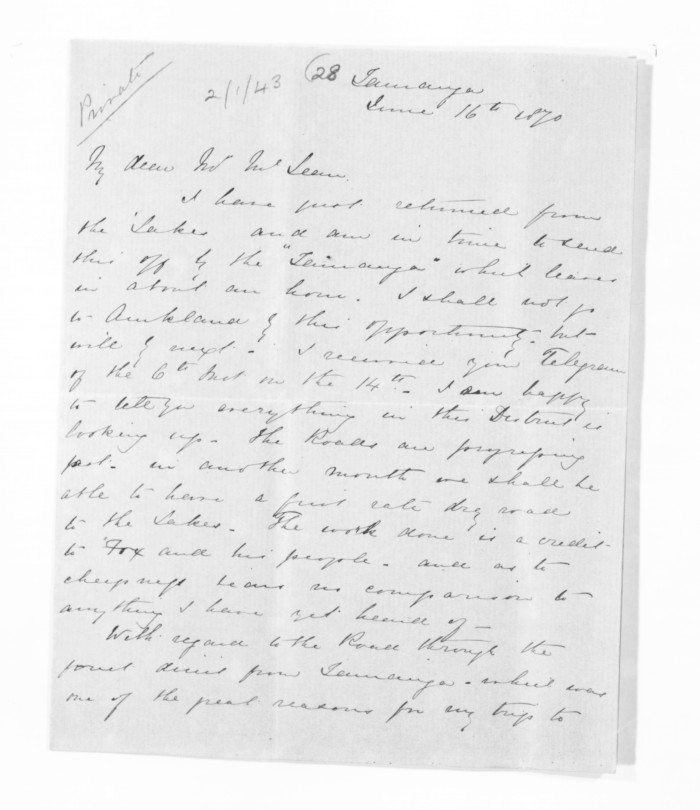 Private
2/1/43 (28 Tauranga
June 16th 1870
My dear Mr McLean
I have just returned from
the Lakes and am in time to send
this off by the "Tauranga" which leaves
in about an hour. I shall not go
to Auckland by this opportunity - but
will by next - I received your Telegram
of the 6th Inst on the 14th - I am happy
to tell you everything in this District is
looking up - The Roads are progressing
fast - in another month we shall be
able to have a first rate dray road
to the Lakes - The work done is a credit
to Fox and his people - and as to
cheapness bears no comparison to
anything I have yet heard of -
With regard to the Road through the
forest direct from Tauranga - which was
one of the great reasons for my trip to